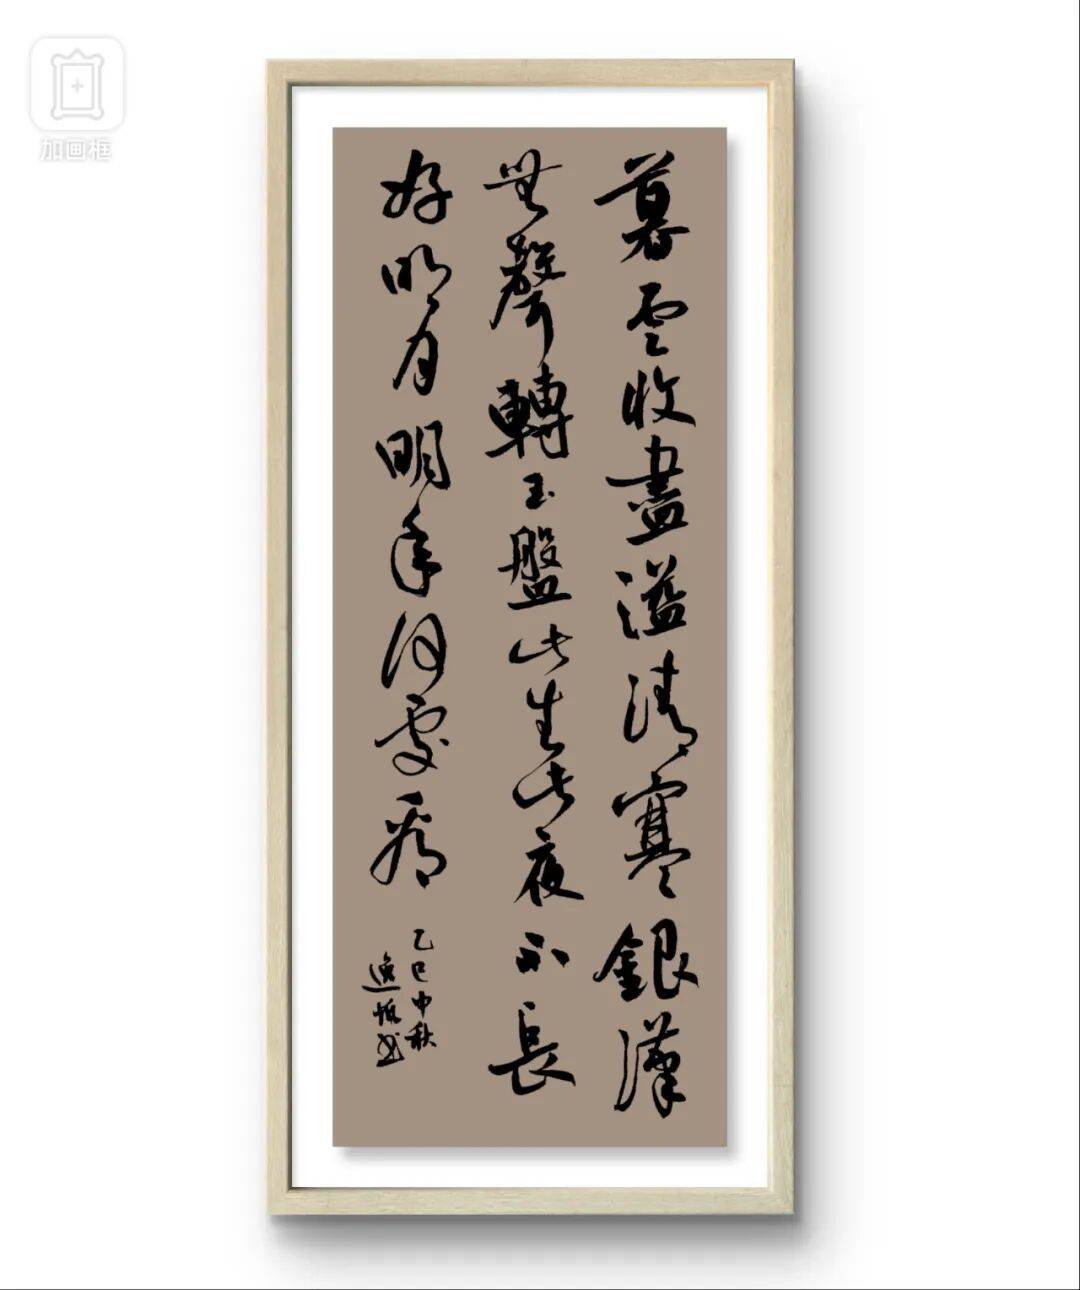 暮雲收盡溢清寒銀漢
無聲轉玉盤此生此夜不長
好明月明年何處看
乙巳中秋
逸恆書
加画框